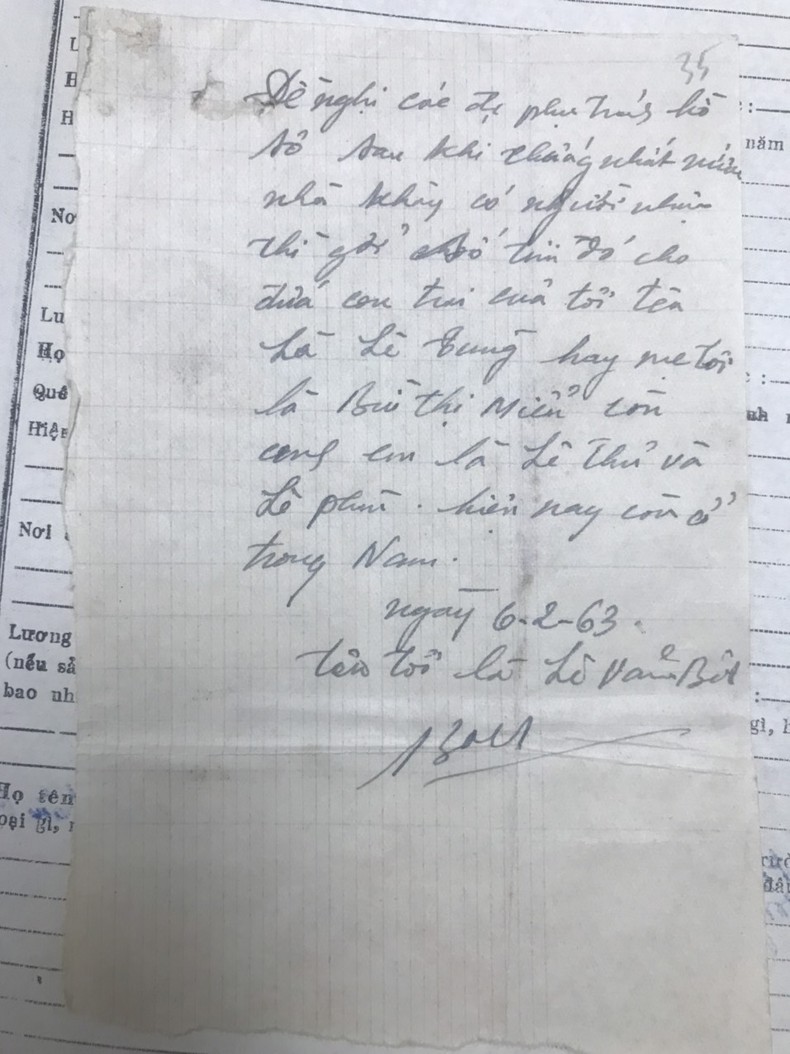 35
Đề nghị các đ/c phụ trách hồ
sơ sau khi thống nhất nước
nhà không có người nhận
thì gởi số tiền đó cho
đứa con trai của tôi tên
Là Lê Trung hay mẹ tôi
là Bùi Thị Miển còn
em là Lê Thử và
Lê hiện nay còn ở
trong Nam.
ngày 6-2-63.
tên tôi là Lê Văn
Nơ
Lu
Họ
Quê
Hiện
Nơi
Lương
(nếu sả
bao nh
Họ tên
oại gì,
năm
gì,